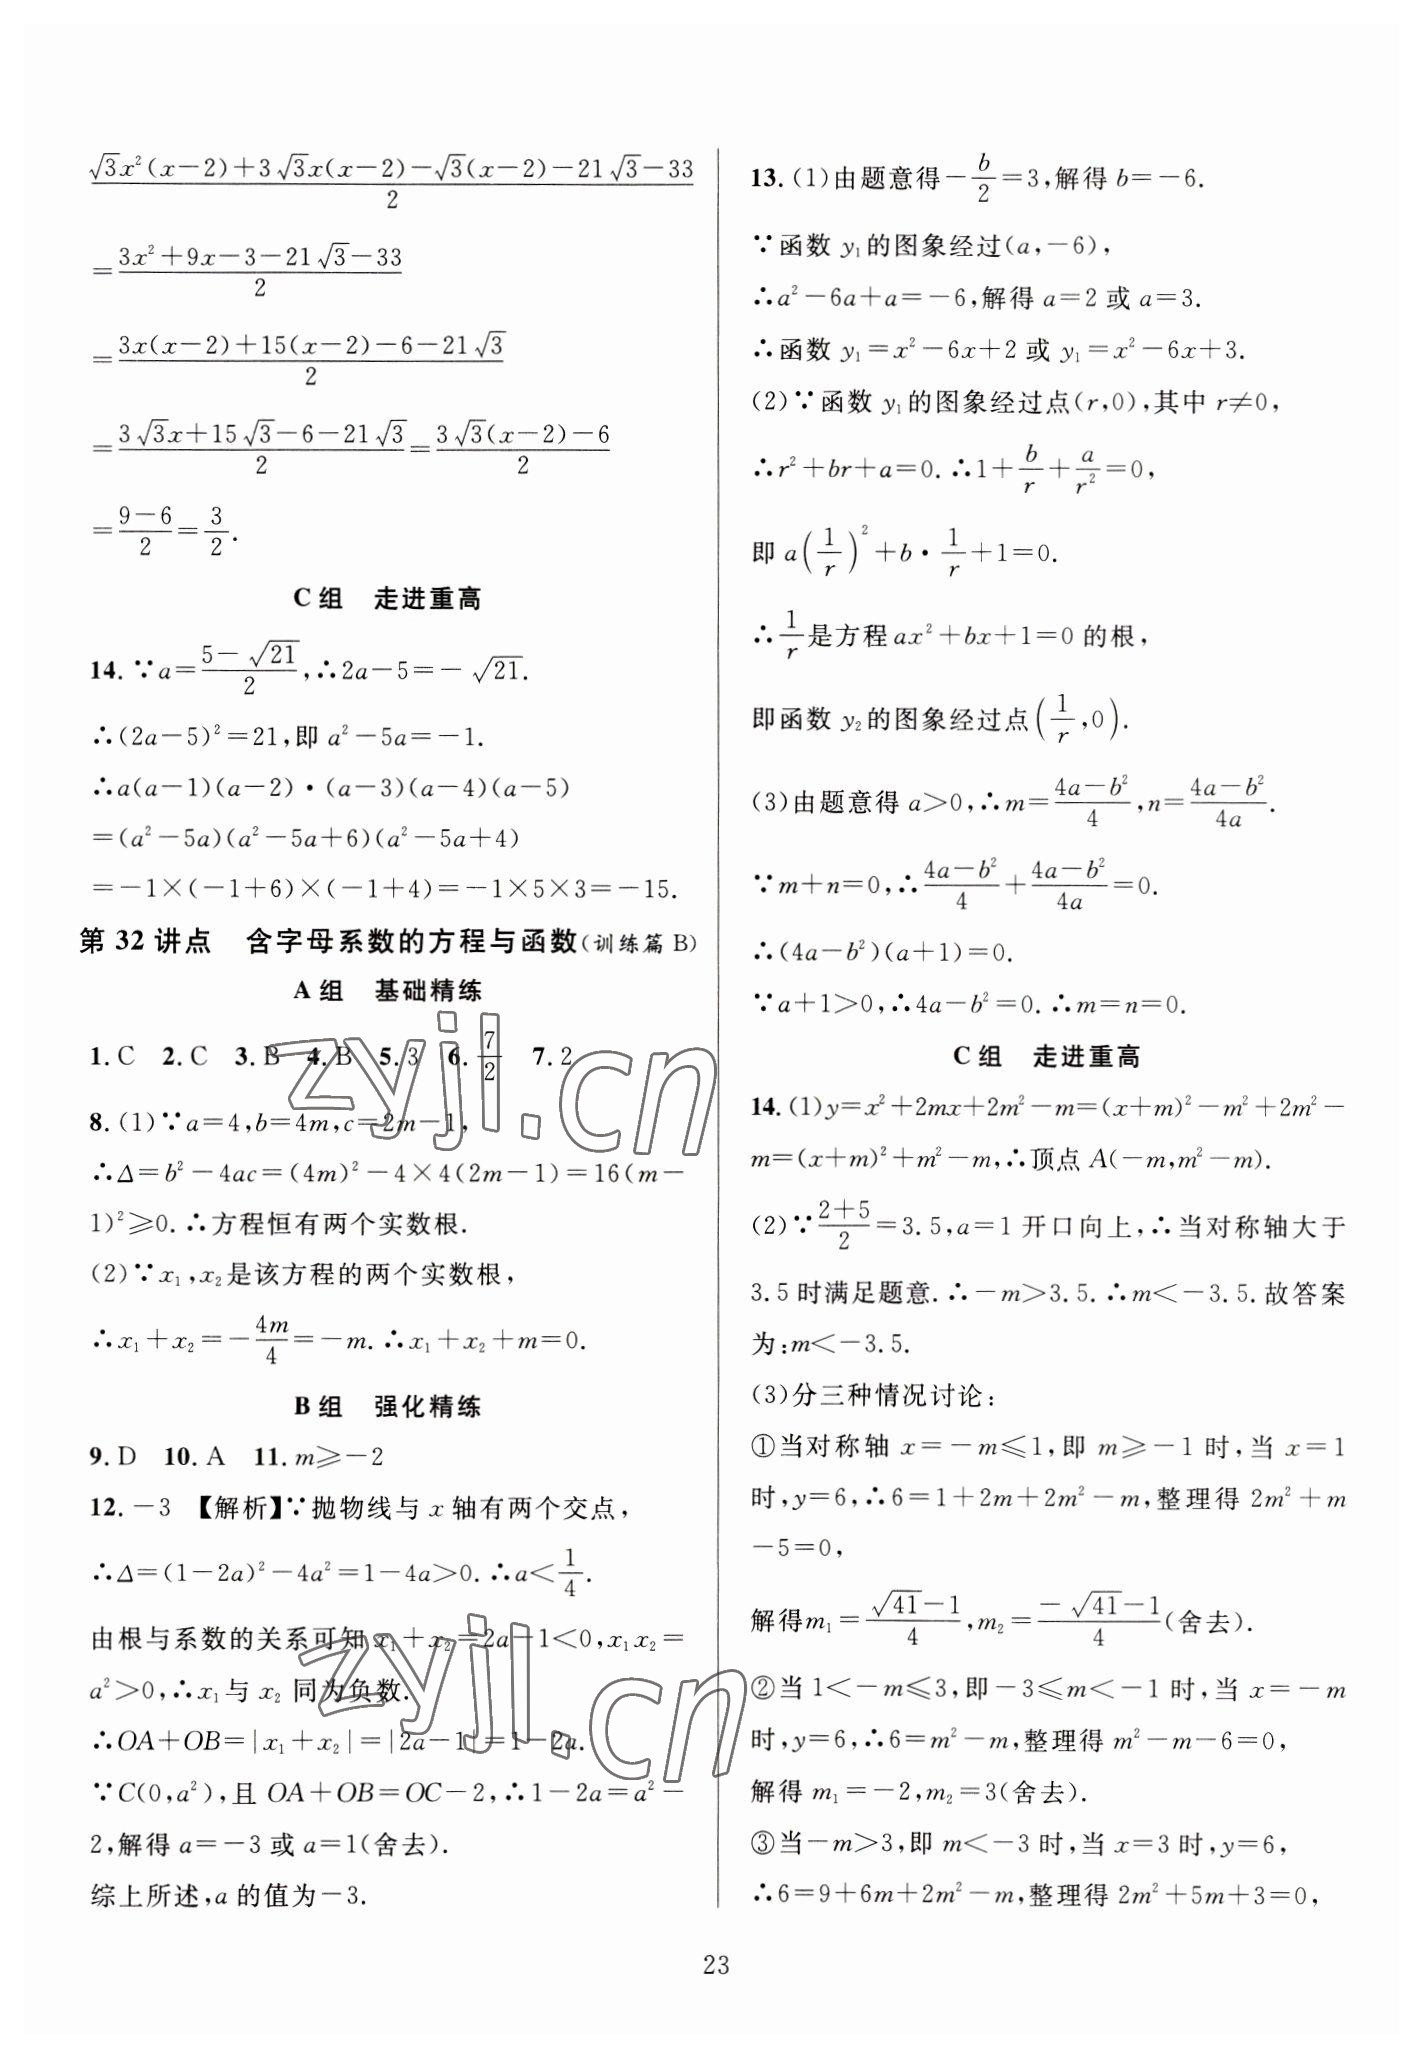 √3x²(x-2)+3√3x(x-2)-√3(x-2)-21√3-33 / 2
=(3x²+9x-3-21√3-33)/2
=(3x(x-2)+15(x-2)-6-21√3)/2
=(3√3x+15√3-6-21√3)/2=(3√3(x-2)-6)/2
=(9-6)/2=3/2.
C组 走进重高
14.∵a=(5-√21)/2,∴2a-5=-√21.
∴(2a-5)²=21,即 a²-5a=-1.
∴a(a-1)(a-2)·(a-3)(a-4)(a-5)
=(a²-5a)(a²-5a+6)(a²-5a+4)
=-1×(-1+6)×(-1+4)=-1×5×3=-15.
第 32 讲点 含字母系数的方程与函数(训练篇 B)
A组 基础精练
1.C 2.C 3.B 4.B 5.3 6.7/2 7.2
8.(1)∵a=4,b=4m,c=2m-1,
∴Δ=b²-4ac=(4m)²-4×4(2m-1)=16(m-
1)²≥0.∴方程恒有两个实数根.
(2)∵x₁,x₂是该方程的两个实数根,
∴x₁+x₂=-4m/4=-m.∴x₁+x₂+m=0.
B组 强化精练
9.D 10.A 11.m≥-2
12.-3 【解析】∵抛物线与 x 轴有两个交点,
∴Δ=(1-2a)²-4a²=1-4a>0.∴a<1/4.
由根与系数的关系可知 x₁+x₂=2a-1<0,x₁x₂=
a²>0,∴x₁与 x₂ 同为负数.
∴OA+OB=|x₁+x₂|=|2a-1|=1-2a.
∵C(0,a²),且 OA+OB=OC-2,∴1-2a=a²-
2,解得 a=-3 或 a=1(舍去).
综上所述,a 的值为-3.
13.(1)由题意得-b/2=3,解得 b=-6.
∵函数 y₁的图象经过(a,-6),
∴a²-6a+a=-6,解得 a=2 或 a=3.
∴函数 y₁=x²-6x+2 或 y₁=x²-6x+3.
(2)∵函数 y₁的图象经过点(r,0),其中 r≠0,
∴r²+br+a=0.∴1+b/r+a/r²=0,
即 a(1/r)²+b·1/r+1=0.
∴1/r是方程 ax²+bx+1=0 的根,
即函数 y₂的图象经过点(1/r,0).
(3)由题意得 a>0,∴m=(4a-b²)/4,n=(4a-b²)/4a.
∵m+n=0,∴(4a-b²)/4+(4a-b²)/4a=0.
∴(4a-b²)(a+1)=0.
∵a+1>0,∴4a-b²=0.∴m=n=0.
C组 走进重高
14.(1)y=x²+2mx+2m²-m=(x+m)²-m²+2m²-
m=(x+m)²+m²-m,∴顶点 A(-m,m²-m).
(2)∵(2+5)/2=3.5,a=1 开口向上,∴当对称轴大于
3.5 时满足题意.∴-m>3.5.∴m<-3.5.故答案
为:m<-3.5.
(3)分三种情况讨论:
①当对称轴 x=-m≤1,即 m≥-1 时,当 x=1
时,y=6,∴6=1+2m+2m²-m,整理得 2m²+m
-5=0,
解得m₁=(√41-1)/4,m₂=(-√41-1)/4(舍去).
②当 1<-m≤3,即-3≤m<-1 时,当 x=-m
时,y=6,∴6=m²-m,整理得 m²-m-6=0,
解得 m₁=-2,m₂=3(舍去).
③当-m>3,即 m<-3 时,当 x=3 时,y=6,
∴6=9+6m+2m²-m,整理得 2m²+5m+3=0,
23
zyjl.cn
zyjl.cn